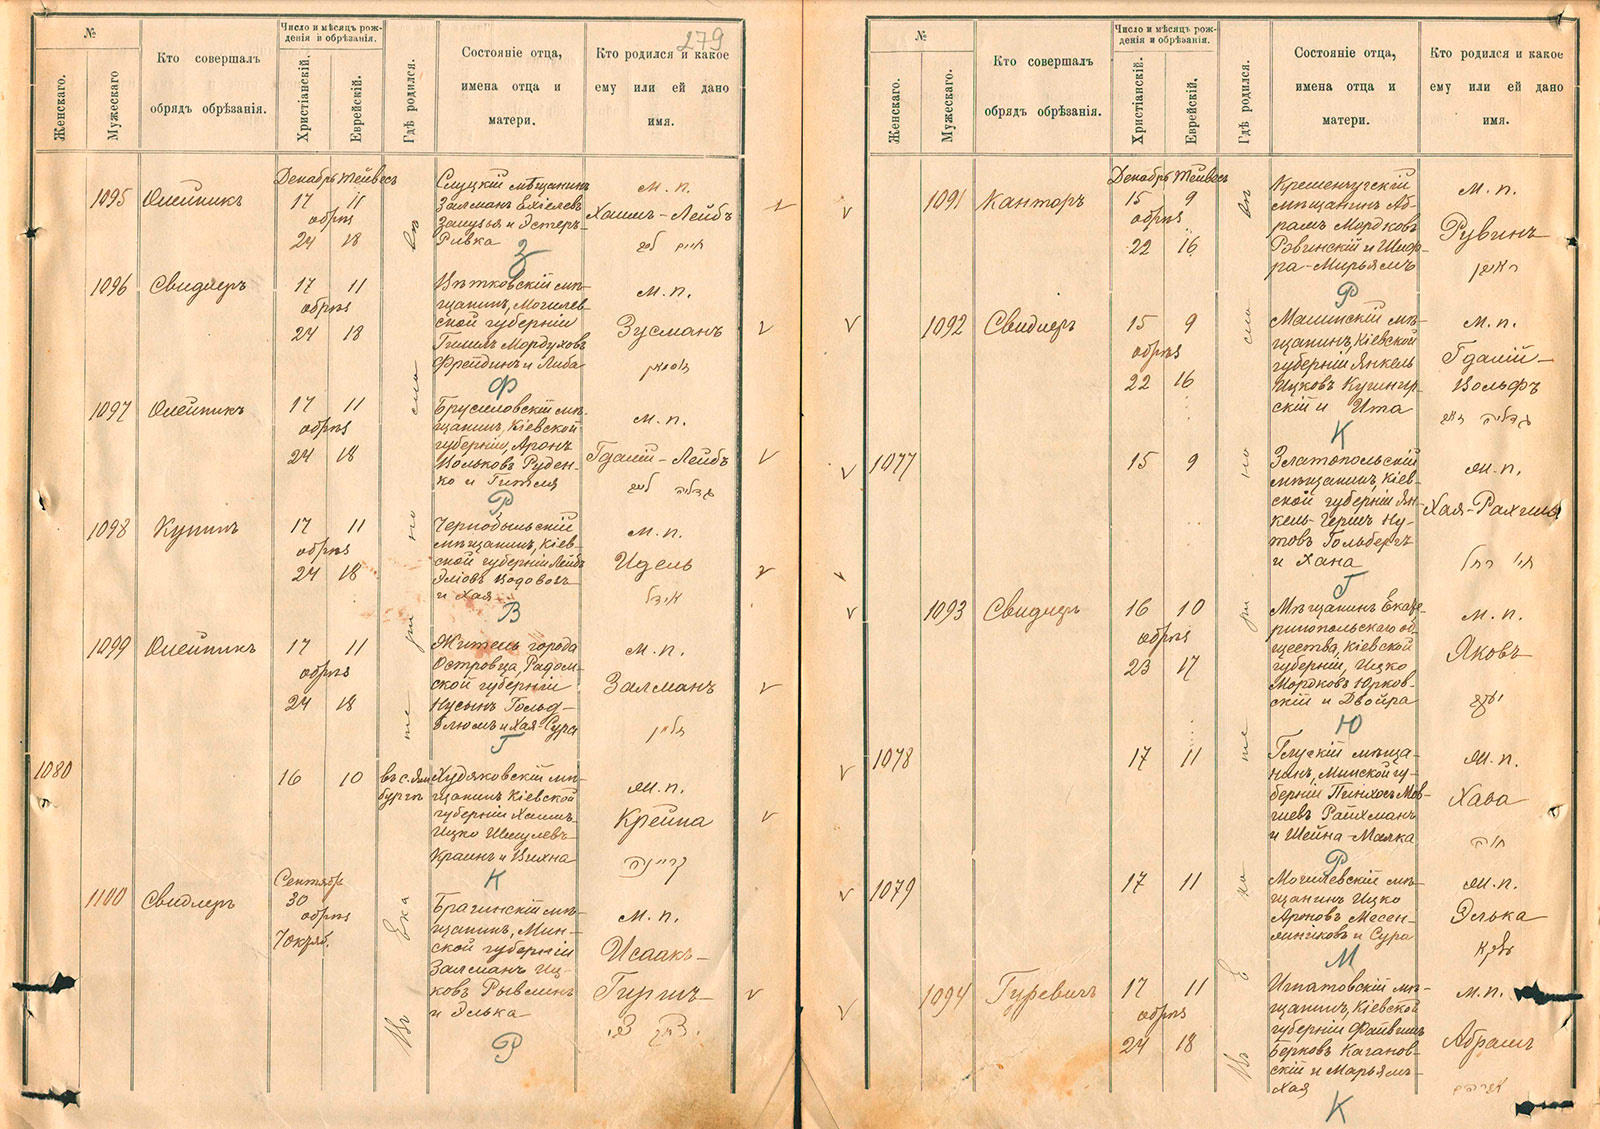 279
№
Женскаго.
Мужескаго
Кто совершалъ
обрядъ обрѣзанія.
Число и мѣсяцъ рож-
денія и обрѣзанія.
Христіанскій.
Еврейскій.
Гдѣ родился.
Состояніе отца,
имена отца и
матери.
Кто родился и какое
ему или ей дано
имя.
Декабрь Тейвесъ
1095 Олейникъ
17 11
обрѣз
24 18
Слуцкій мѣщанинъ
Залманъ Ехіелевъ
и Эстеръ-
Ривка
З
м. п.
Хаимъ-Лейбъ
1096 Свидлеръ
17 11
обрѣз
24 18
Вѣтковскій мѣ-
щанинъ, Могилев-
ской губерніи
Гилель Мордуховъ
Фрейдинъ и Либа
Ф
м. п.
Зусманъ
זוסמאן
1097 Олейникъ
17 11
обрѣз
24 18
Брусиловскій мѣ-
щанинъ, Кіевской
губерніи, Аронъ
Вольковъ Руден-
ко и Гитля
Р
м. п.
Гдалій-Лейбъ
גדליה ליב
1098 Купинъ
17 11
обрѣз
24 18
Чернобыльскій
мѣщанинъ, Кіев-
ской губерніи Лейбъ
Эліовъ Водовозъ
и Хая
В
м. п.
Идель
אידל
1099 Олейникъ
17 11
обрѣз
24 18
Житель города
Островца, Радом-
ской губерніи
Нусынъ Гольд-
блюмъ и Хая-Сура
Г
м. п.
Залманъ
זלמן
1080
16 10
въ с. Ям
бургъ
Ходяковскій мѣ-
щанинъ Кіевской
губерніи Хаимъ-
Ицко Шмулевъ
Краинъ и Вихна
К
ж. п.
Крейна
קריינה
1100 Свидлеръ
Сентябр
30
обрѣз
7 октяб.
Брагинскій мѣ-
щанинъ, Мин-
ской губерніи
Залманъ Иц-
ковъ Рывлинъ
и Элька
Р
м. п.
Исаакъ-
Гиршъ
יצחק צבי
Въ Екатеринославѣ
№
Женскаго.
Мужескаго.
Кто совершалъ
обрядъ обрѣзанія.
Число и мѣсяцъ рож-
денія и обрѣзанія.
Христіанскій.
Еврейскій.
Гдѣ родился.
Состояніе отца,
имена отца и
матери.
Кто родился и какое
ему или ей дано
имя.
Декабрь Тейвесъ
1091 Канторъ
15 9
обрѣз
22 16
Кременчугскій
мѣщанинъ Аб-
рамъ Мордковъ
Рэвинскій и Шиф-
ра-Мирьямъ
Р
м. п.
Рувинъ
ראובן
1092 Свидлеръ
15 9
обрѣз
22 16
Малинскій мѣ-
щанинъ, Кіевской
губерніи Янкель
Ицковъ Кушнир-
скій и Ита
К
м. п.
Гдалій-
Вольфъ
גדליה זאב
1077
15 9
Златопольскій
мѣщанинъ, Кіев-
ской губерніи Ян-
кель-Гершъ Ну-
товъ Гольбергъ
и Хана
Г
ж. п.
Хая-Рахиль
חיי רחל
1093 Свидлеръ
16 10
обрѣз
23 17
Мѣщанинъ Екате-
ринопольскаго об-
щества, Кіевской
губерніи, Ицко
Мордковъ Юрков-
скій и Двойра
Ю
м. п.
Яковъ
יעקב
1078
17 11
Глускій мѣща-
нинъ, Минской гу-
берніи Пинхосъ Мов-
шевъ Райхманъ
и Шейна-Малка
Р
ж. п.
Хава
חוה
1079
17 11
Могилевскій мѣ-
щанинъ Ицко
Ароновъ Месен-
жниковъ и Сура
М
ж. п.
Элька
עלקא
1094 Гуревичъ
17 11
обрѣз
24 18
Игнатовскій мѣ-
щанинъ, Кіевской
губерніи Файвишъ
Берковъ Каганов-
скій и Марьямъ-
Хая
К
м. п.
Абрамъ
אברהם
Въ Екатеринославѣ